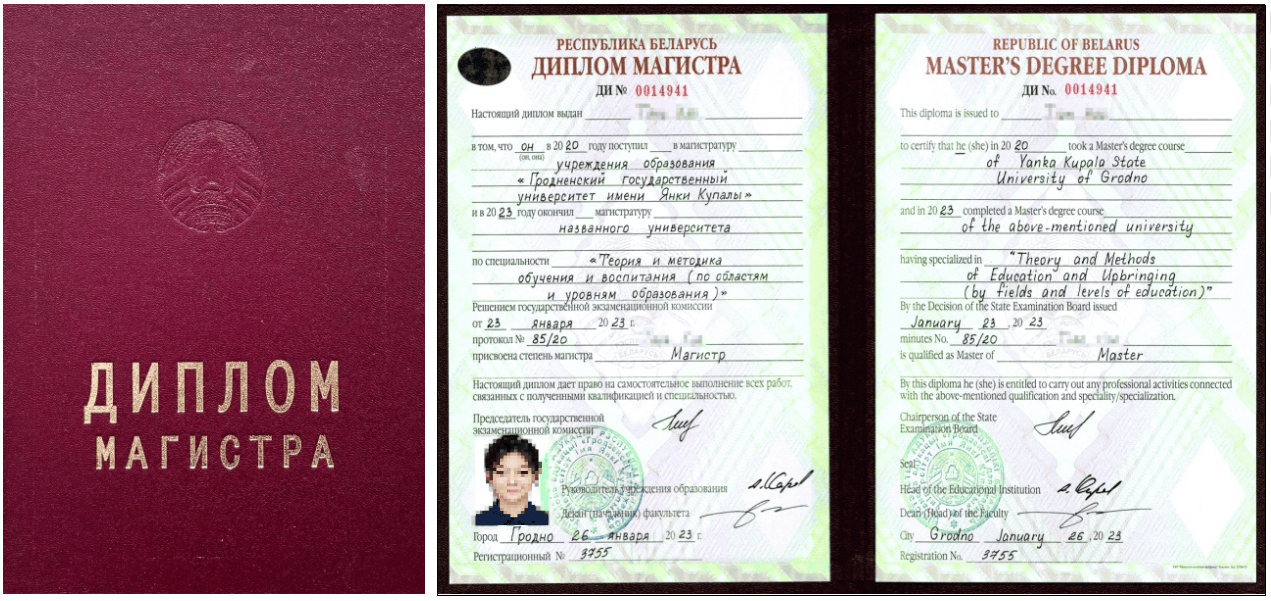 ДИПЛОМ
МАГИСТРА
РЕСПУБЛИКА БЕЛАРУСЬ
ДИПЛОМ МАГИСТРА
ДИ № 0014941
Настоящий диплом выдан
в том, что он в 2020 году поступил в магистратуру
(он, она)
учреждения образования
«Гродненский государственный
университет имени Янки Купалы»
и в 2023 году окончил магистратуру
названного университета
по специальности «Теория и методика
обучения и воспитания (по областям
и уровням образования)»
Решением государственной экзаменационной комиссии
от 23 января 2023 г.
протокол № 85/20
присвоена степень магистра Магистр
Настоящий диплом дает право на самостоятельное выполнение всех работ,
связанных с полученными квалификацией и специальностью.
Председатель государственной
экзаменационной комиссии
Руководитель учреждения образования
Декан (начальник) факультета
Город Гродно 26 января 2023 г.
Регистрационный № 3755
REPUBLIC OF BELARUS
MASTER'S DEGREE DIPLOMA
ДИ No. 0014941
This diploma is issued to
to certify that he (she) in 2020 took a Master's degree course
of Yanka Kupala State
University of Grodno
and in 2023 completed a Master's degree course
of the above-mentioned university
having specialized in "Theory and Methods
of Education and Upbringing
(by fields and levels of education)"
By the Decision of the State Examination Board issued
January 23, 2023
minutes No. 85/20
is qualified as Master of Master
By this diploma he (she) is entitled to carry out any professional activities connected
with the above-mentioned qualification and speciality/specialization.
Chairperson of the State
Examination Board
Seal
Head of the Educational Institution
Dean (Head) of the Faculty
City Grodno January 26, 2023
Registration No. 3755